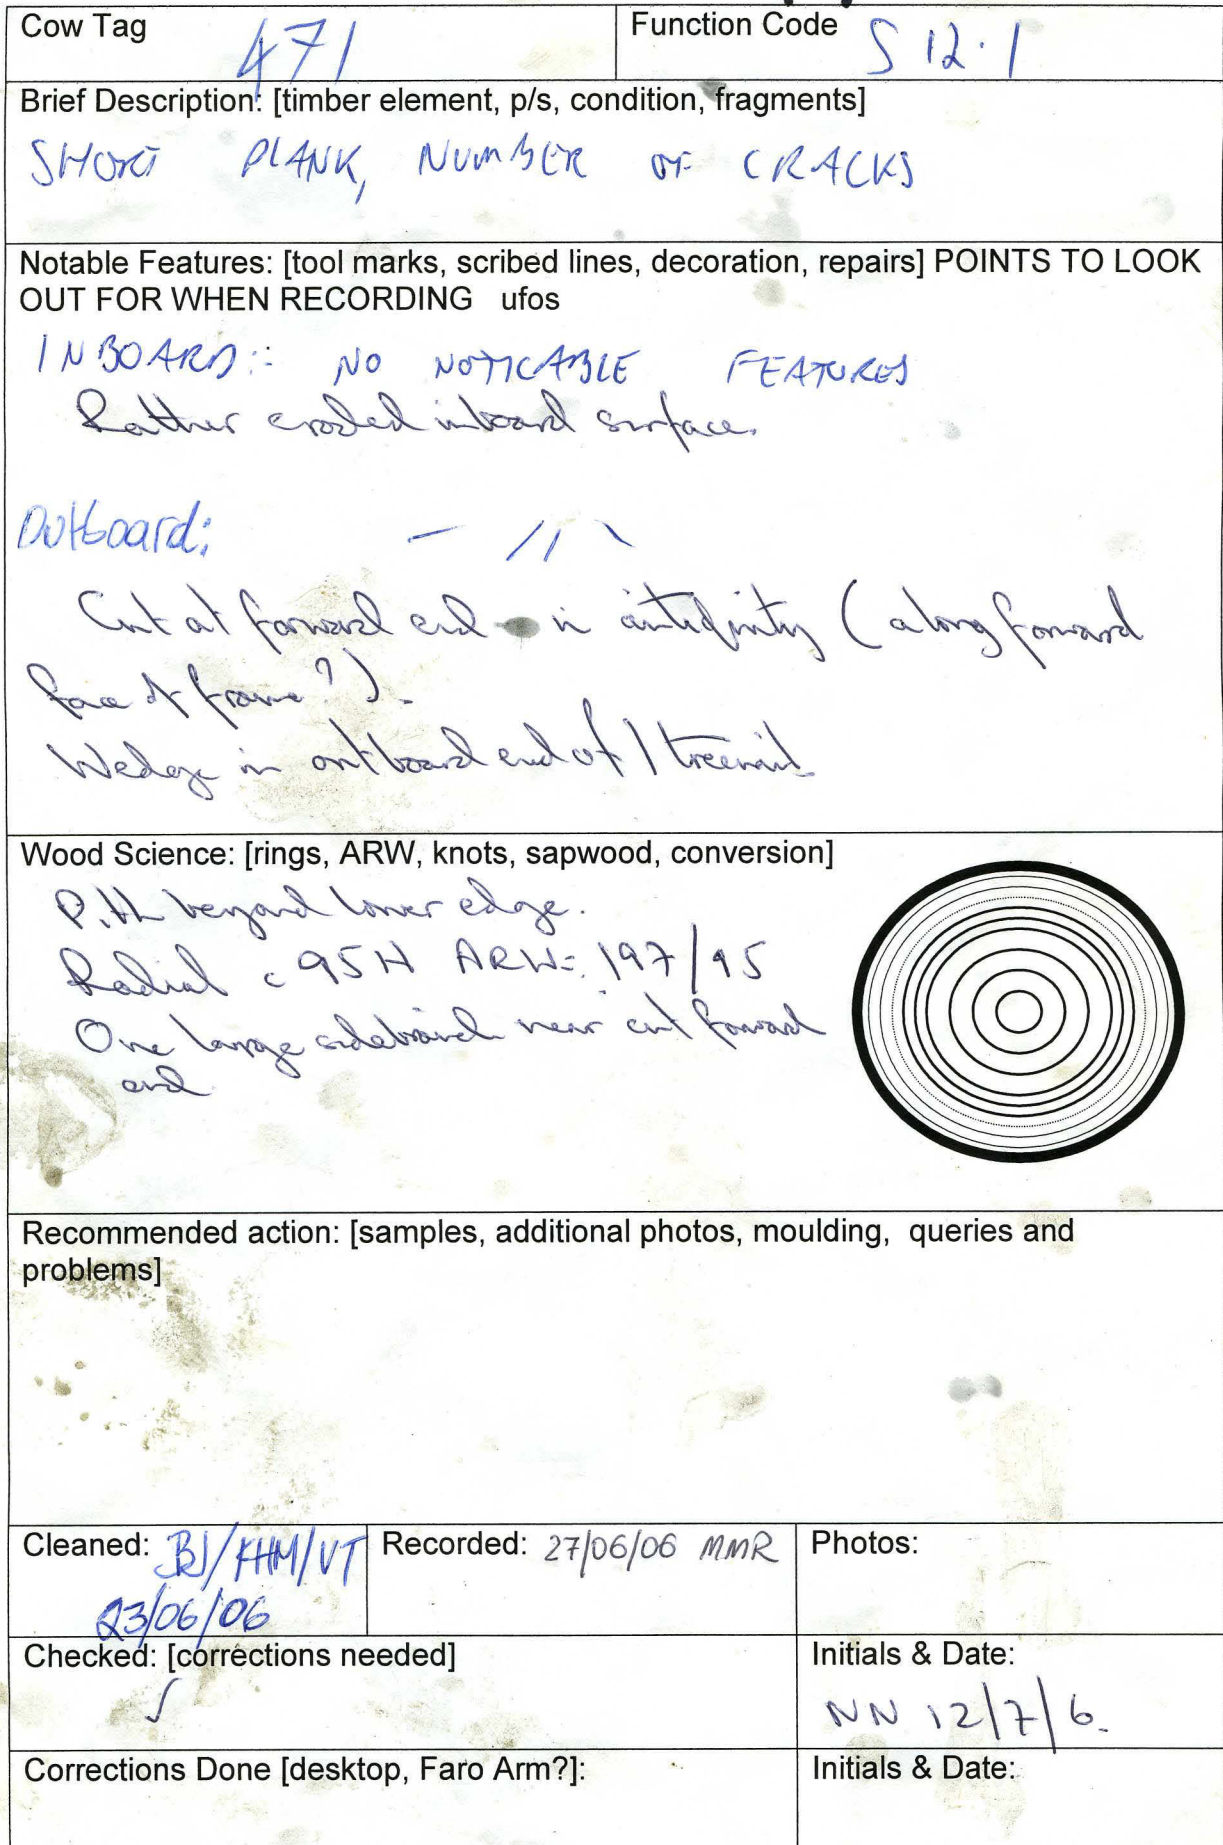 Cow Tag 471 Function Code S12.1
Brief Description: [timber element, p/s, condition, fragments]
SHORT PLANK, NUMBER OF CRACKS
Notable Features: [tool marks, scribed lines, decoration, repairs] POINTS TO LOOK
OUT FOR WHEN RECORDING ufos
INBOARD:- NO NOTICABLE FEATURES
Rather eroded inboard surface.
Outboard: — // \
Cut at forward end in antiquity (along forward
face of frame?).
Wedge in outboard end of 1 treenail
Wood Science: [rings, ARW, knots, sapwood, conversion]
Pith beyond lower edge.
Radial c 95H ARW= 197/95
One large sidebranch near cut forward
end
Recommended action: [samples, additional photos, moulding, queries and
problems]
Cleaned: BJ/KHM/VT Recorded: 27/06/06 MMR Photos:
23/06/06
Checked: [corrections needed] Initials & Date:
✓ NN 12/7/6.
Corrections Done [desktop, Faro Arm?]: Initials & Date: